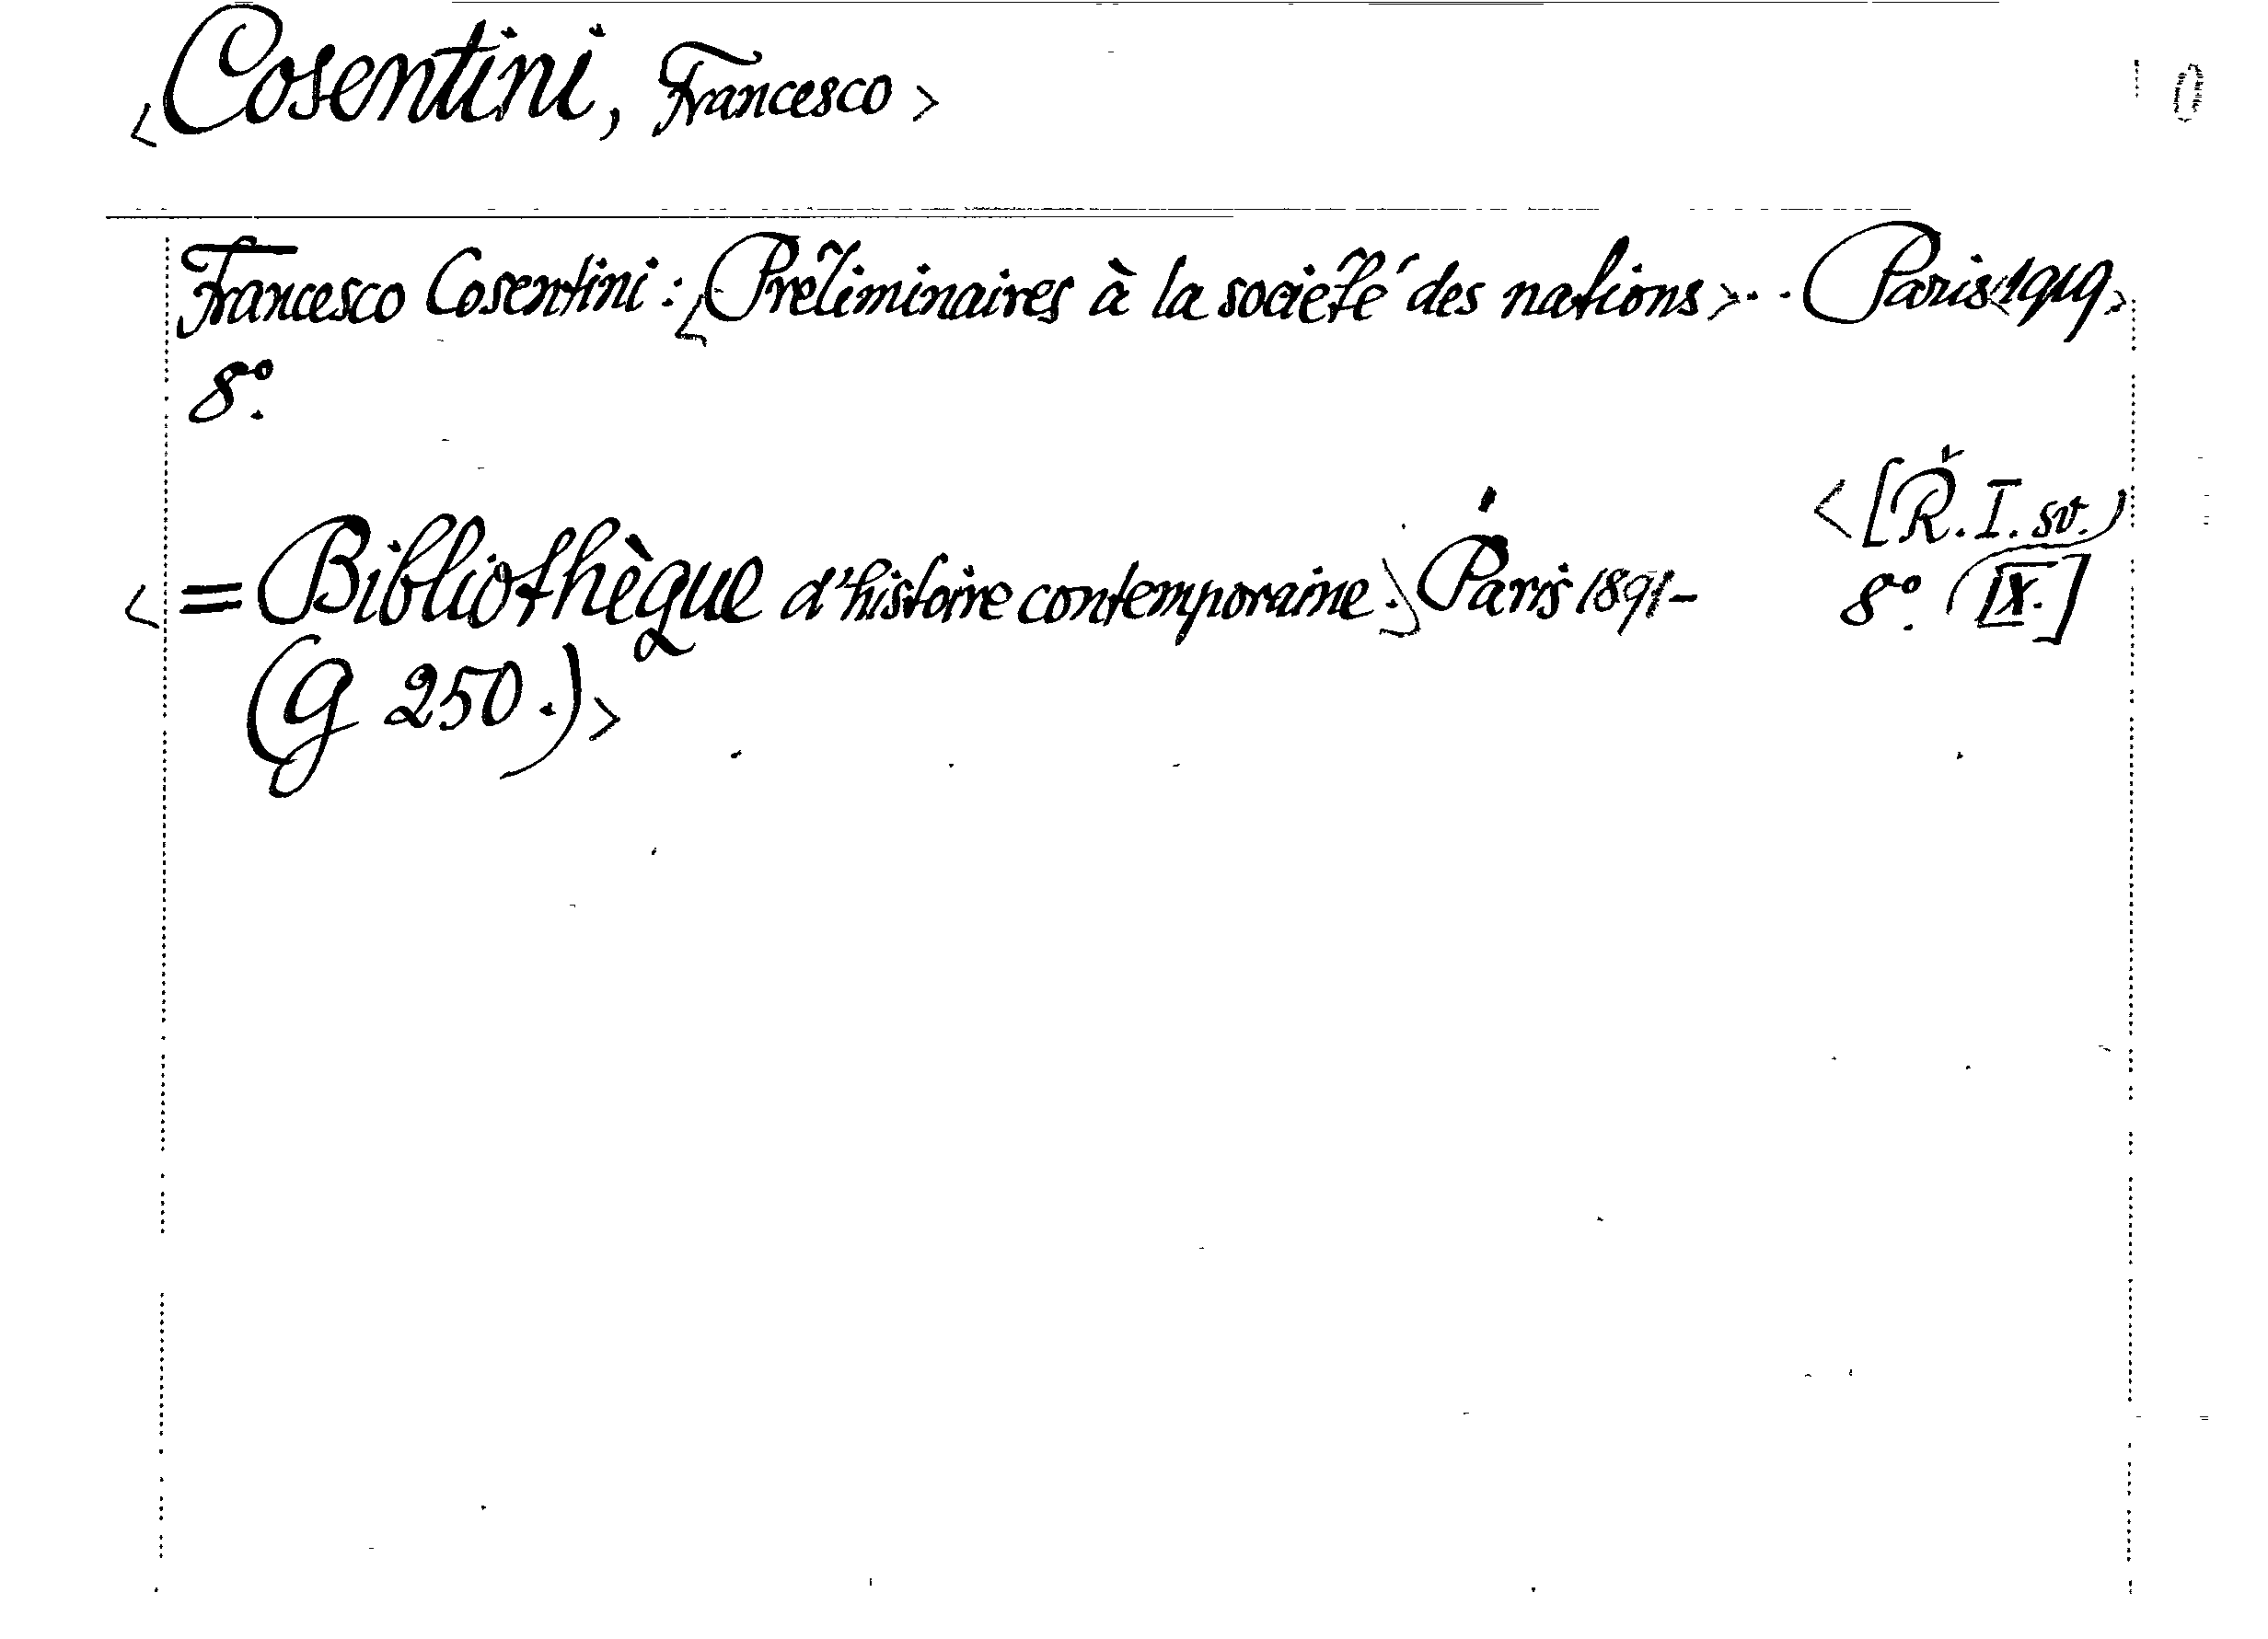 <Cosentini, Francesco>
Francesco Cosentini: <Préliminaires à la société des nations>... Paris <1919>.
8°.
<[Ř. I. sv.)
<= Bibliothèque d'histoire contemporaine.> Paris 1891- 8°. (IX.]
(G 250.)>